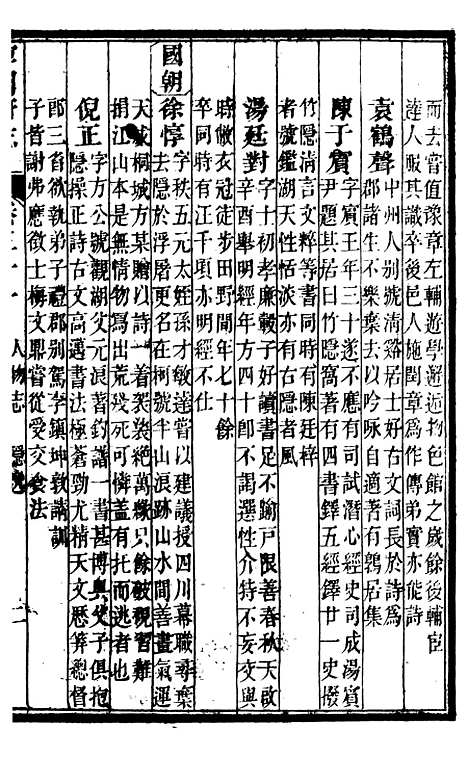 而去嘗值豫章左輔遊學邂逅物色館之歲餘後輔宦
達人服其識卒後邑人施閏章爲作傳弟實亦能詩
袁鶴聲 中州人别號清谿居士好古文詞長於詩爲
郡諸生不樂棄去以吟咏自適著有鶉居集
陳于賓 字賓王年三十遂不應有司試潛心經史司成湯賓
尹題其居曰竹隱窩著有四書鐸五經鐸廿一史掇
竹隱清言文粹等書同時有陳廷梓
者號鑑湖天性恬淡亦有右隱者風
湯廷對 字士初孝廉轂子好讀書足不踰戶限善春秋天啟
辛酉舉明經年方四十即不謁選性介特不妄交與
時倣衣冠徒步田野間年七十餘
卒同時有江千頃亦明經不仕
國朝
徐惇 字秩五元太姪孫才敏達嘗以建議授四川幕職尋棄
去隱於浮屠更名在柯號半山浪跡山水間善畫氣運
天成桐城方某贈以詩一着袈裟絶萬緣只餘破硯習難
捐江山本是無情物寫出荒殘死可憐蓋有托而逃者也
倪正 字方公號觀湖父元浪著鈞譜一書甚博奥父子俱抱
隱操正詩古文高邁書法極蒼勁尤精天文歷算總督
郎三省欲執弟子禮郡别駕李鎮坤敦請訓
子皆謝弗應徵士梅文鼎嘗從受交食法
人物志 隱逸